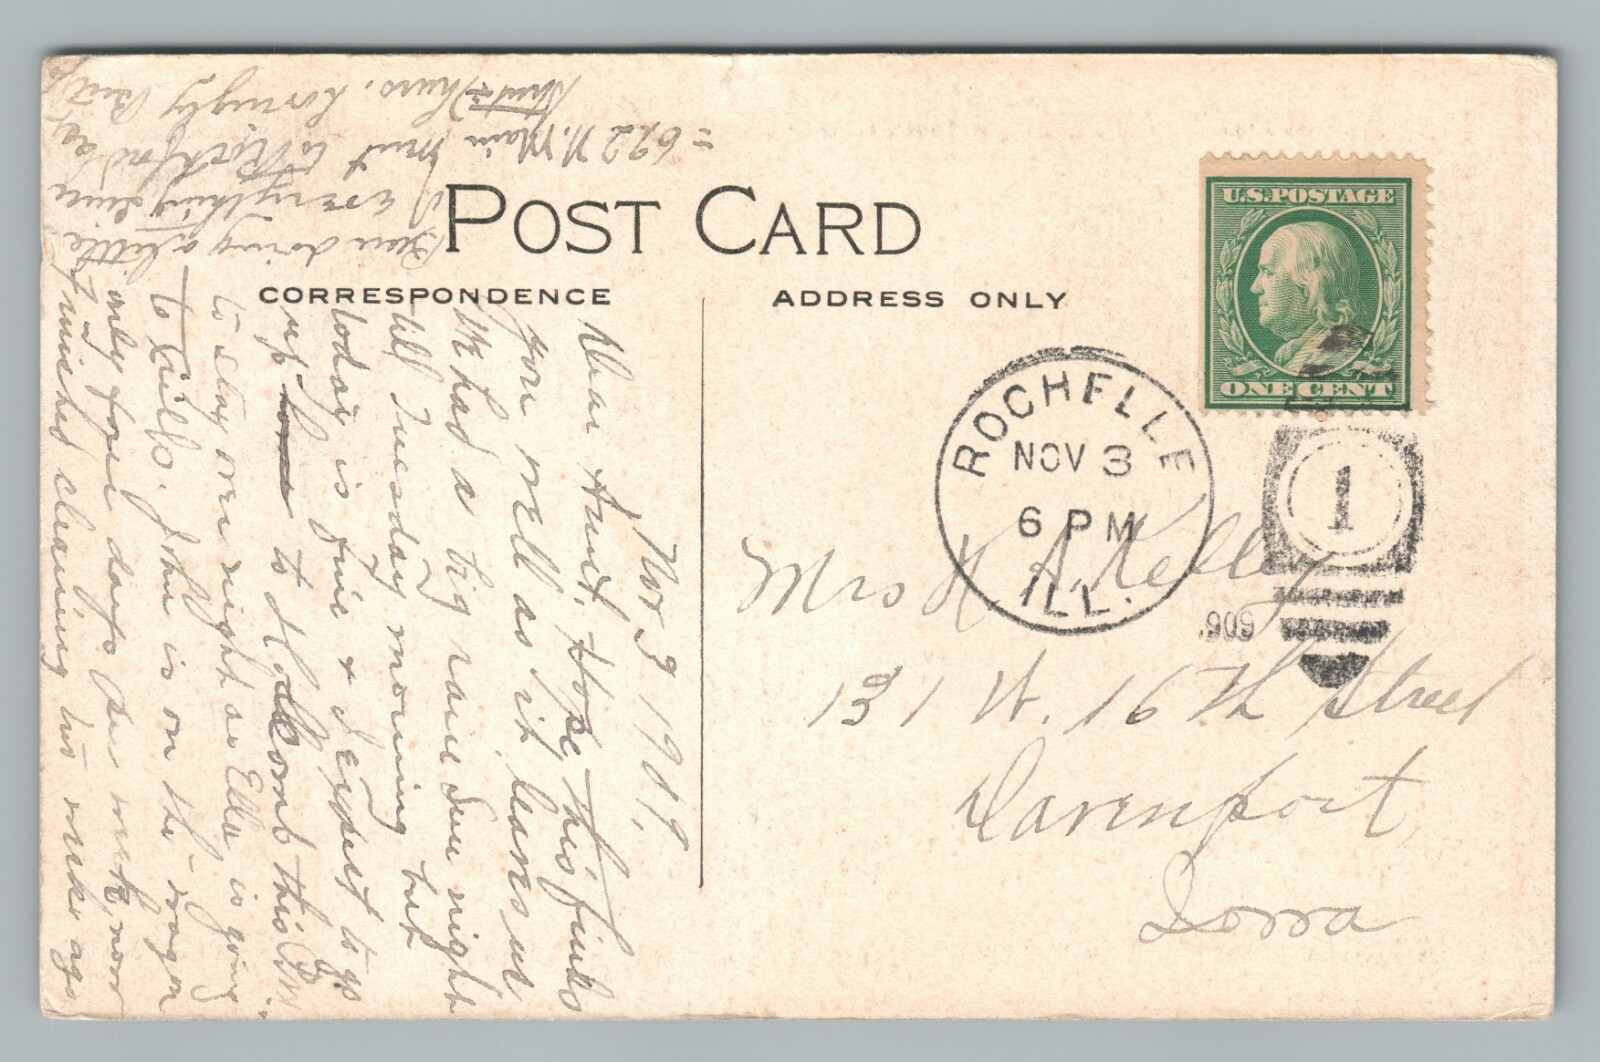 POST CARD
CORRESPONDENCE
ADDRESS ONLY
U.S. POSTAGE
ONE CENT
ROCHELLE
NOV 3
6 PM
ILL.
1909
1
Mrs H. A. Kelley
131 W. 16th Street
Davenport,
Iowa
Nov 3 1909,
Dear Aunt, Hope this finds
you well as it leaves us
We had a big rain Sun night
till Tuesday morning but
today is fine & I expect to go
up to Holcomb this P.M.
to stay over night as Ella is going
to John is on the wagon
only five days per week, now
finished cleaning two weeks ago
Been doing a little
everything since
went to Rockford
= 622 N. Main
Thurs. Lovingly